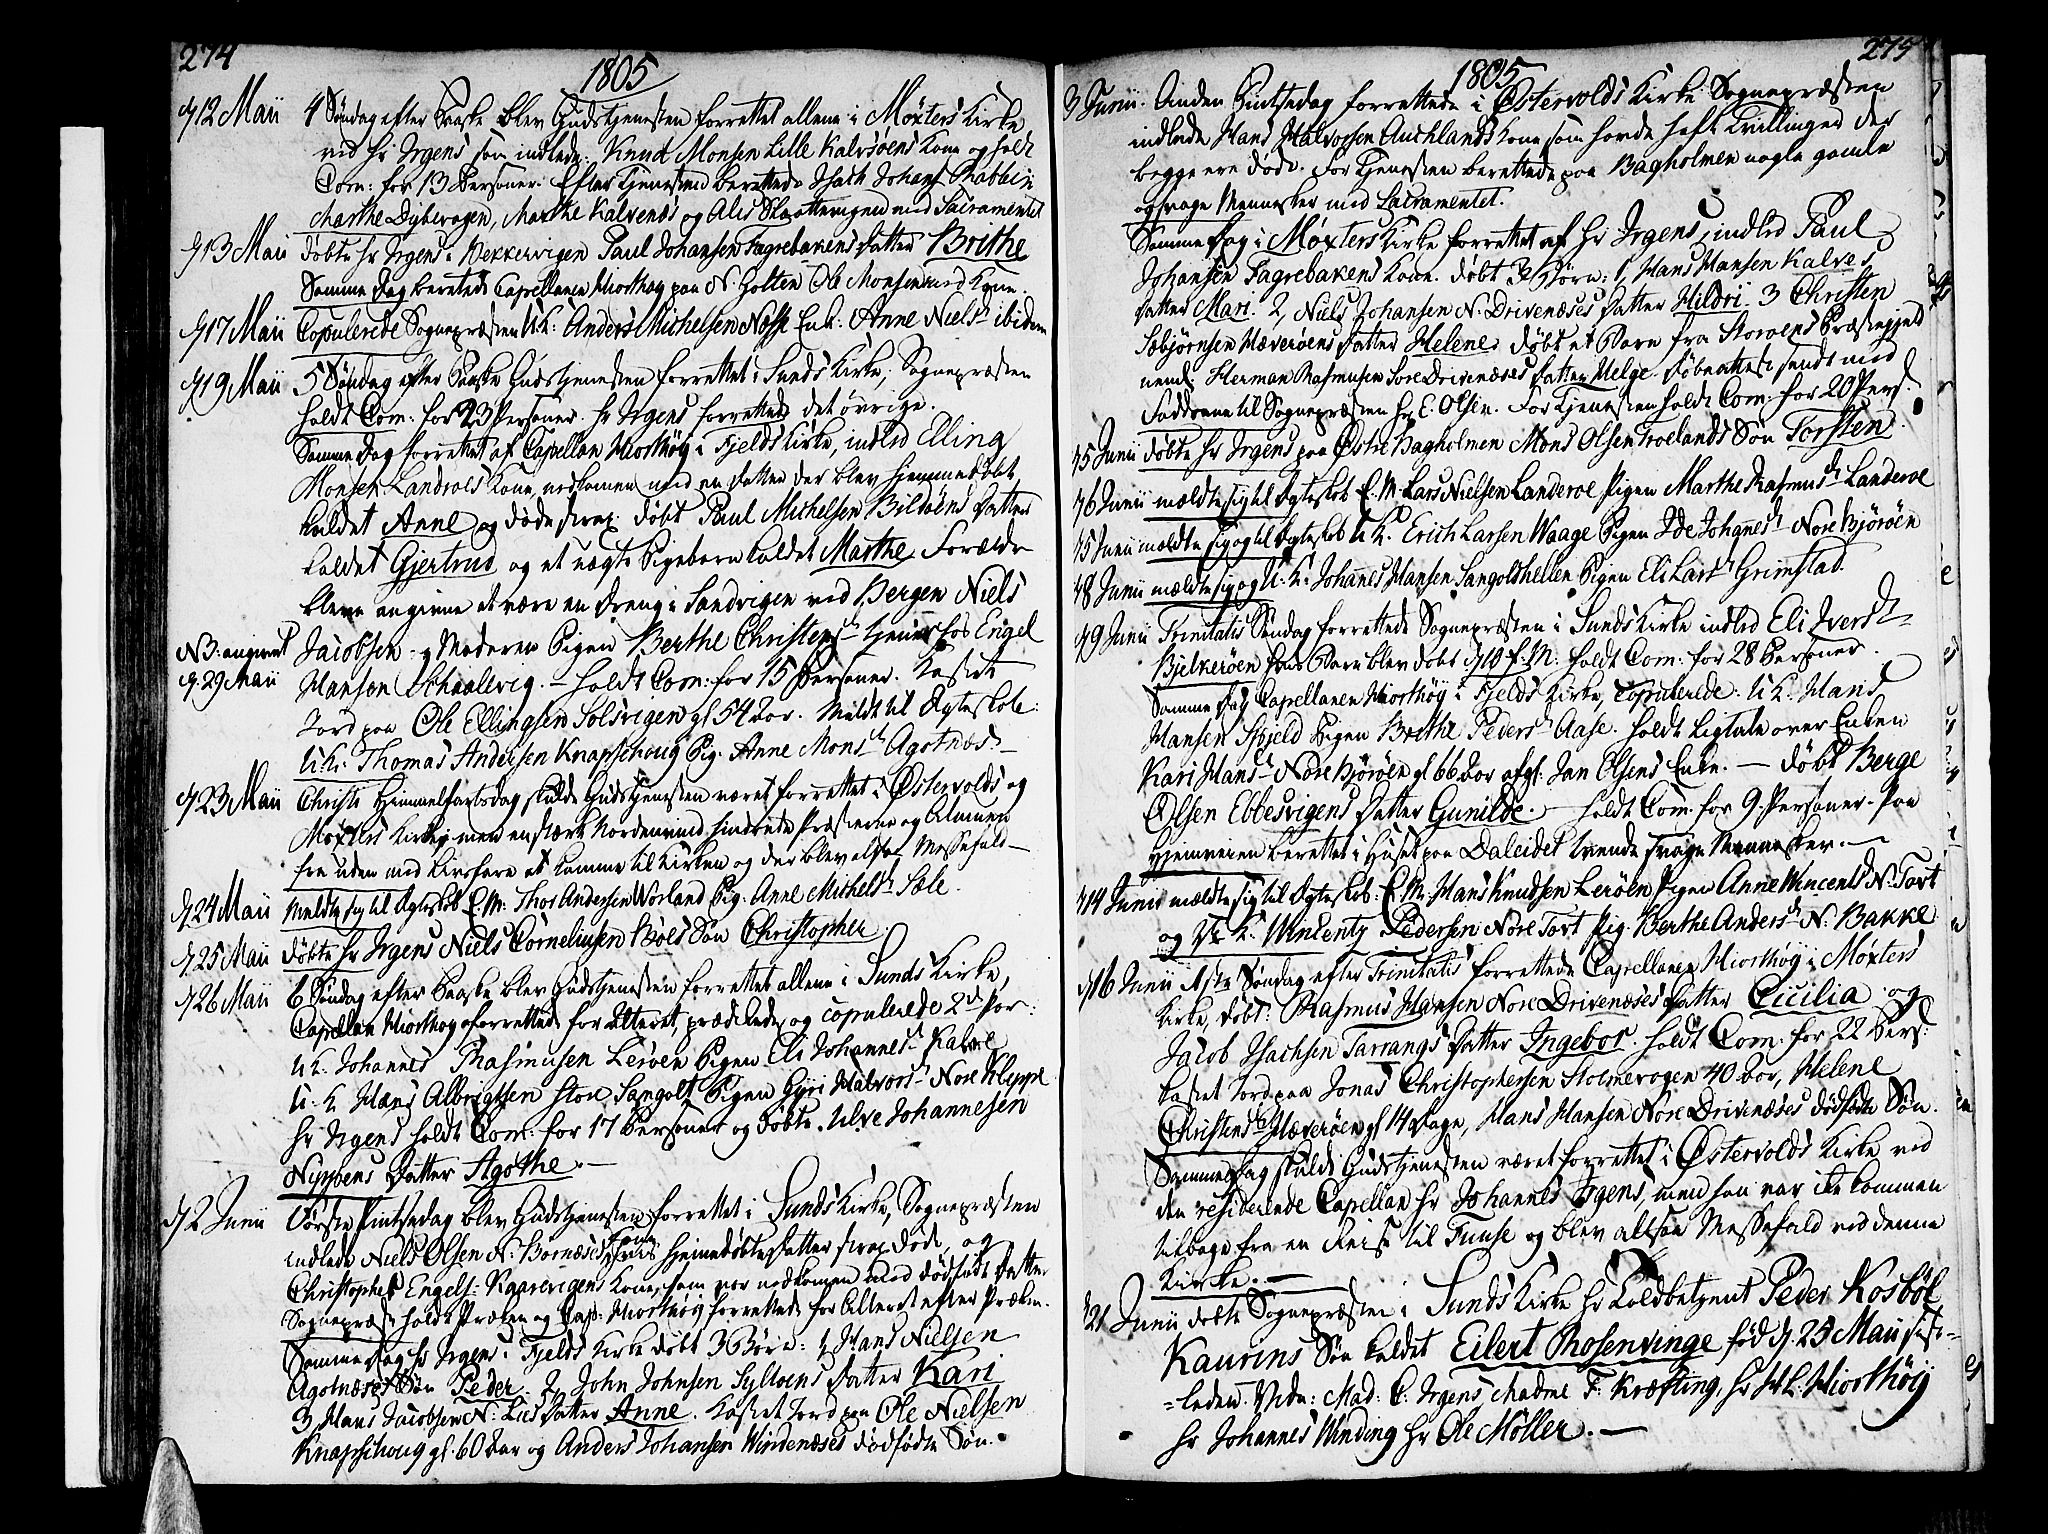 274
1805
d 12 Maii 4 Søndag efter Paaske blev Gudstjenesten forrettet allene i Møxters Kirke
ved Hr Irgens som indlede Knud Monsen Lille Kalvsøens Kone og holdt
Com: for 13 Personer. Efter Tjenesten berettede Isach Johans Rabben
Marthe Dybevogen, Marthe Kalvenæs og Alis Skottevigen med Sacramentet
d 13 Maii døbte Hr Irgens i Vekkervigen Paul Johansen Fagrebakens Datter Brithe
Samme Dag berettede Capellanen Hiorthøy paa N. Golten Ole Monsen med Kone.
d 17 Maii Copulerede Sognepræsten U.K: Anders Michelsen Næsse Enk. Anne Nielsd ibidem
d 19 Maii 5 Søndag efter Paaske Gudstjenesten forrettet i Sunds Kirke, Sognepræsten
holdt Com: for 23 Personer. Hr Irgens forrettede det øvrige.
Samme Dag forrettet af Capellan Hiorthøy i Fjelds Kirke, indled Elling
Monsen Landroes Kone, nedkomen med en Datter der blev hjemmedøbt
kaldet Anne og døde strax. Døbt Paul Michelsen Bildøens Datter
kaldet Gjertrud og et uægte Pigebarn kaldet Marthe. Forældre
bleve angivne at være en Dreng i Sandvigen ved Bergen Niels
NB: angivet Jacobsen og Moderen Pigen Berthe Christensd tjener hos Engel
d. 29 Maii Hansen Schaalevig. – holdt Com: for 15 Personer. Kastet
Jord paa Ole Ellingsen Solsvigen gl 54 Aar. Meldt til Ægteskab:
U.K. Thomas Andersen Knapschoug Pig. Anne Monsd Agotnæs. –
d 23 Maii Christi Himmelfartsdag skulde Gudstjenesten været forrettet i Østervolds og
Møxters Kirker, men en stærk Nordenvind hindrede Præsterne og Almuen
fra uden med Livsfare at komme til Kirken og der blev altsaa Messefald –
d 24 Maii Meldte sig til Ægteskab E.M. Thor Andersen Vorland Pig. Anne Michelsd Sæle.
d 25 Maii døbte Hr Irgens Niels Corneliusen Bøes Søn Christopher.
d 26 Maii 6 Søndag efter Paaske blev Gudstjenesten forrettet allene i Sunds Kirke,
Capellan Hiorthøy forrettede for Alteret, prædikede og copulerede 2de Par:
U.K. Johannes Rasmusen Lerøen Pigen Eli Johannesd Kalve
U. K. Hans Albrigtsen Store Sangolt Pigen Gyri Halvorsd Nore Kleppe
Hr Irgens holdt Com: for 17 Personer og døbte Ulve Johannesen
Nipens Datter Agothe. –
d 2 Junii Første Pintsedag blev Gudstjenesten forrettet i Sunds Kirke, Sognepræsten
indlede Niels Olsen N. Bornæses Kone hjemmedøbte Datter strax død, og
Christopher Engels: Kaarevigens Kone som var nedkomen med dødfødt Datter
Sognepræst holdt Præken og Cap: Hiorthøy forrettede for Alteret efter Præken.
Samme Dag Hr Irgens i Fjelds Kirke døbt 3 Børn: 1, Hans Nielsen
Agotnæses Søn Peder. 2, John Johnsen Syltøens Datter Kari
3, Hans Jacobsen N: Lies Datter Anne. Kastet Jord paa Ole Nielsen
Knapschoug gl. 60 Aar og Anders Johansen Windenæses dødfødte Søn.
275
1805
3 Junii. Anden Pintsedag forrettede i Østervolds Kirke Sognepræsten
indlede Hans Halvorsen Auchlands Kone som havde haft Tvillinger der
begge ere døde. For Tjenesten berettede paa Bagholmen nogle gamle
og svage Mennesker med Sacramentet.
Samme Dag i Møxters Kirke forrettet af Hr Irgens, indled Paul
Johansen Fagrebakens Kone. Døbt 3 Børn: 1, Hans Hansen Kalves
Datter Mari. 2, Niels Johansen N. Drivenæses Datter Hildri. 3 Christen
Sæbjørnsen Hæverøens Datter Helene. Døbt et Barn fra Storøens Præstegjeld
nemd: Herman Rasmusen Søre Drivenæses Datter Helge. Døbeattest sendt med
Fadderne til Sognepræsten Hr E. Olsen. For Tjenesten holdt Com: for 20 Pers.
d 5 Junii døbte Hr Irgens paa Østre Bagholmen Mons Olsen Troelands Søn Torsten.
d 6 Junii mældte sig til Ægteskab E.M. Lars Nielsen Landeroe Pigen Marthe Rasmusd Landeroe
d 5 Junii mældte sig og til Ægteskab U.K. Erich Larsen Waage Pigen Ide Johanesd Nore Bjørøen
d 8 Junii mældte sig og U.K. Johannes Hansen Sangoltshellen Pigen Eli Larsd Grimstad.
d 9 Junii Trinitatis Søndag forrettede Sognepræsten i Sunds Kirke indled Eli Iversd
Bjelkerøen hvis Barn blev døbt d 10 f.M. holdt Com: for 28 Personer.
Samme Dag Capellanen Hiorthøy i Fjelds Kirke, copulerede: U.K. Hans
Hansen Skjeld Pigen Brithe Pedersd Aase. holdt Ligtale over Enken
Kari Hansd Nore Bjørøen gl 66 Aar afgl. Jan Olsens Enke. – døbt Berge
Olsen Ebbesvigens Datter Gunilde. – holdt Com: for 9 Personer. Paa
Hjemveien berettet i Huset paa Daleidet trende svage Mennesker. –
d 14 Junii mældte sig til Ægteskab: E.M. Hans Knudsen Lerøen Pigen Anne Wincentsd N: Toft
og U. K. Wincentz Pedersen Nore Toft Pig. Berthe Andersd N: Bakke
d 16 Junii 1ste Søndag efter Trinitatis forrettede Capellanen Hiorthøy i Møxters
Kirke, døbt: Rasmus Hansen Nore Drivenæses Datter Cicilia. og
Jacob Isachsen Tarrangs Datter Ingebor. holdt Com: for 22 Pers:
kastet Jord paa Jonas Christophersen Stolmevogen 40 Aar, Helene
Christensd Hæverøen gl 14 Dage, Hans Hansen Nore Drivenæses dødfødte Søn.
Samme Dag skulde Gudstjenesten været forrettet i Østervolds Kirke ved
den residerede Capellan Hr Johannes Irgens, men han var ikke kommen
tilbage fra en Reise til Fuuse og blev altsaa Messefald ved denne
Kirke. –
d 21 Junii døbte Sognepræsten i Sunds Kirke Hr Toldbetjent Peder Kosbøl
Kaurins Søn kaldet Eilert Rosenvinge fød d 25 Maii sidst-
-leden. Vidn: Mad: C. Irgens, Madme F. Kræfting, Hr H.L. Hiorthøy
Hr Johannes Winding Hr Ole Møller. –